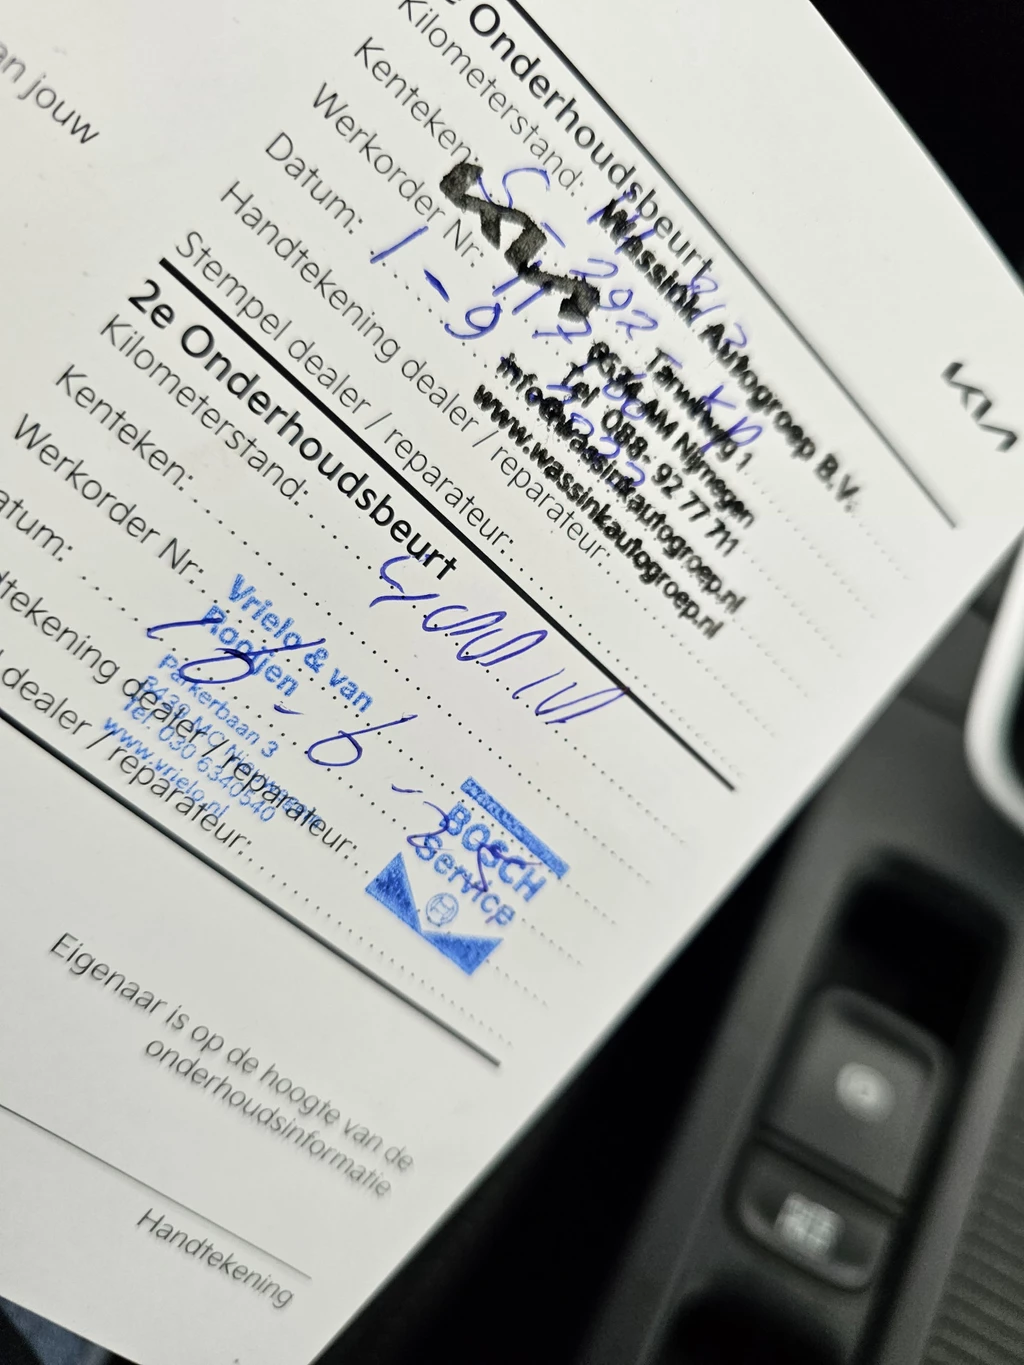 an jouw
Onderhoudsbeurt
Kilometerstand:
Kenteken: S-292-XP
Werkorder Nr:
Datum: 1-9
Handtekening dealer / reparateur:
Stempel dealer / reparateur:
Wassink Autogroep B.V.
Tarweweg 1
6534 AM Nijmegen
Tel. 088- 92 77 711
info@wassinkautogroep.nl
www.wassinkautogroep.nl
2e Onderhoudsbeurt
Kilometerstand:
Kenteken:
Werkorder Nr:
atum: 18-6-25
dtekening dealer / reparateur:
dealer / reparateur:
Vrielo & van
Rooijen
Parkerbaan 3
3439 MC Nieuwegein
Tel. 030 6340540
www.vrielo.nl
BOSCH
Service
Eigenaar is op de hoogte van de
onderhoudsinformatie
Handtekening